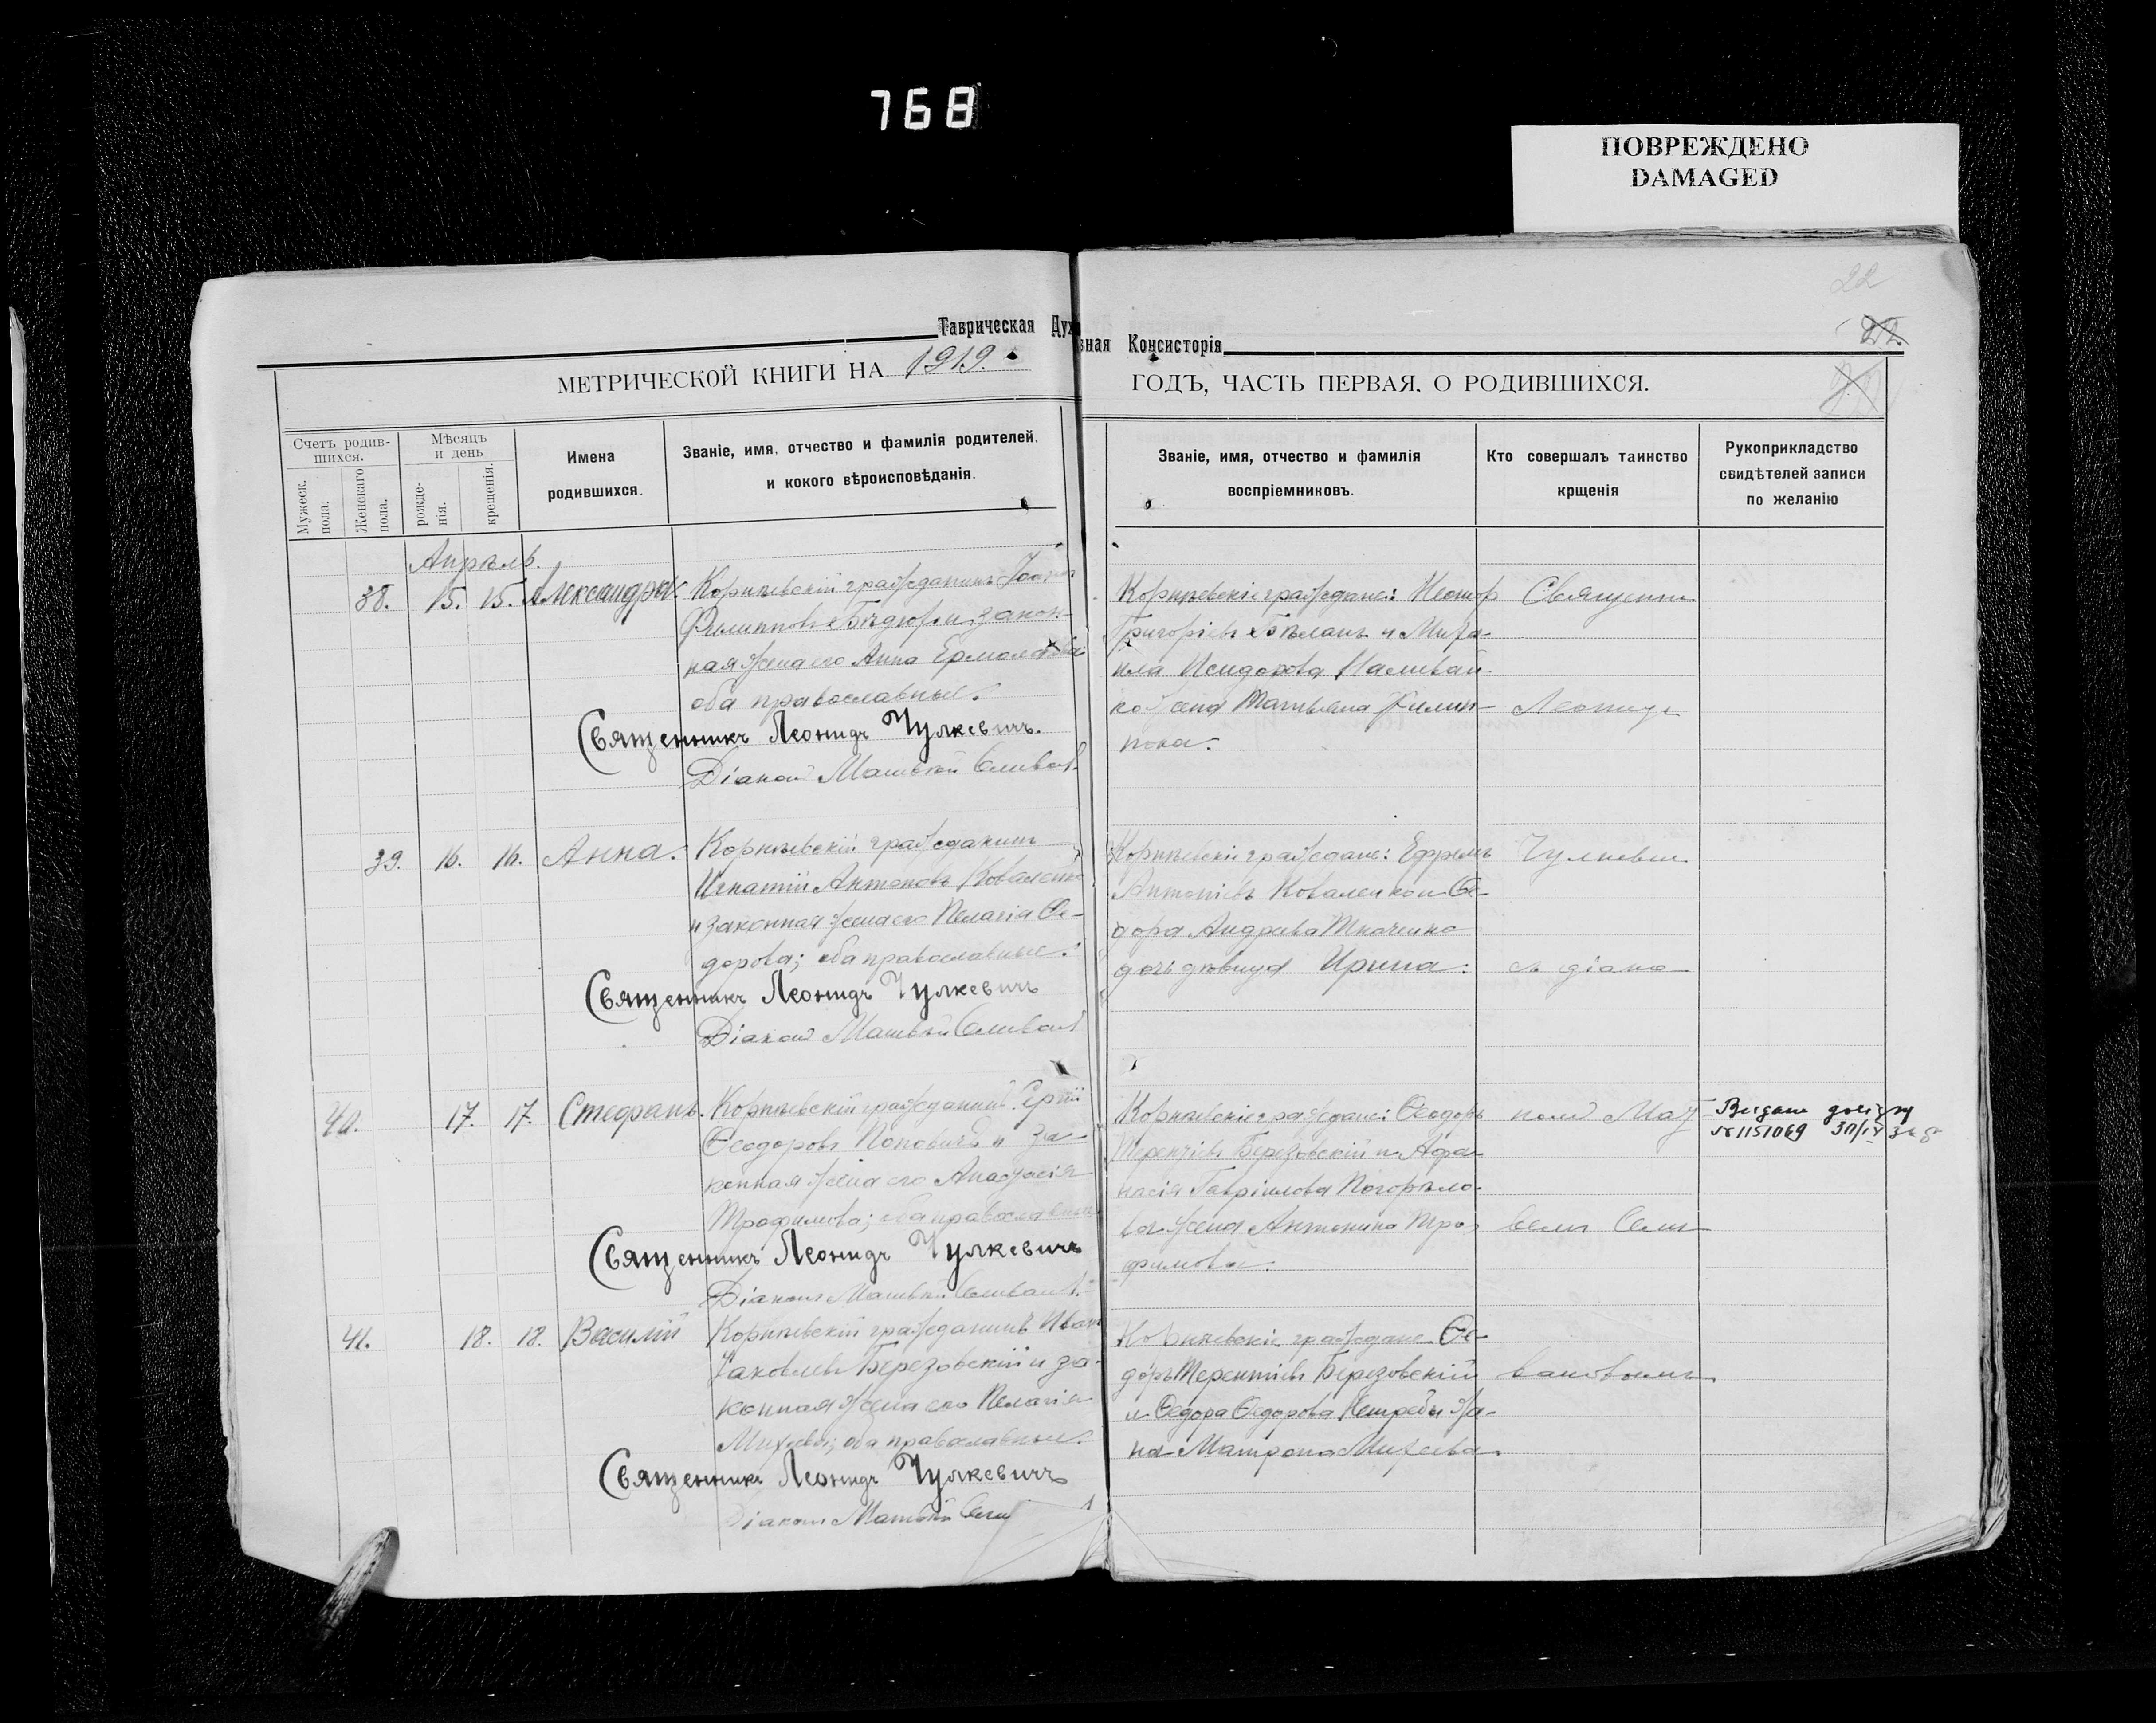 768
ПОВРЕЖДЕНО
DAMAGED
22
Таврическая Духовная Консисторія
МЕТРИЧЕСКОЙ КНИГИ НА 1919.
ГОДЪ, ЧАСТЬ ПЕРВАЯ, О РОДИВШИХСЯ.
Счетъ родив-
шихся.
Мужеск. пола.
Женскаго пола.
Мѣсяцъ
и день
рожде-
нія.
крещенія.
Имена
родившихся.
Званіе, имя, отчество и фамилія родителей,
и кокого вѣроисповѣданія.
Званіе, имя, отчество и фамилія
воспріемниковъ.
Кто совершалъ таинство
крщенія
Рукоприкладство
свидѣтелей записи
по желанію
Апрѣль.
38. 15. 15. Александра.
Корнѣевскій гражданинъ
Филипповъ и закон-
ная жена его Анна
оба православные.
Священникъ Леонидъ Чулкевичъ.
Діаконъ Матвѣй
Корнѣевскіе граждане:
Григоріевъ Бѣланъ и Миха-
ила Исидорова Наливай-
ко жена Татьяна Филип-
пова.
Священник
Леонид
39. 16. 16. Анна.
Корнѣевскій гражданинъ
Игнатій Антоновъ Коваленко
и законная жена его Пелагія Ѳе-
дорова; оба православные.
Священникъ Леонидъ Чулкевичъ
Діаконъ Матвѣй
Корнѣевскіе граждане: Ефремъ
Антоніевъ Коваленко и Ѳе-
дора Андреева Ткаченко
дочь дѣвица Ирина.
Чулкеви
съ діако
40. 17. 17. Стефанъ.
Корнѣевскій гражданинъ
Ѳеодоровъ Поповичъ и за-
конная жена его Анастасія
Трофимова; оба православные
Священникъ Леонидъ Чулкевичъ
Діаконъ Матвѣй
Корнѣевскіе граждане: Ѳеодоръ
Терентіевъ Березовскій и Афа-
насія Гавріилова Погорѣло-
ва жена Антонина Тро-
фимова.
номъ Мат
№ 1151069
41. 18. 18. Василій
Корнѣевскій гражданинъ Иванъ
Яковлевъ Березовскій и за-
конная жена его Пелагія
оба православные.
Священникъ Леонидъ Чулкевичъ
Діаконъ Матвѣй
Корнѣевскіе граждане Ѳе-
доръ Терентіевъ Березовскій
и Ѳедора Ѳедорова
на Матрона Михеева.
вановымъ